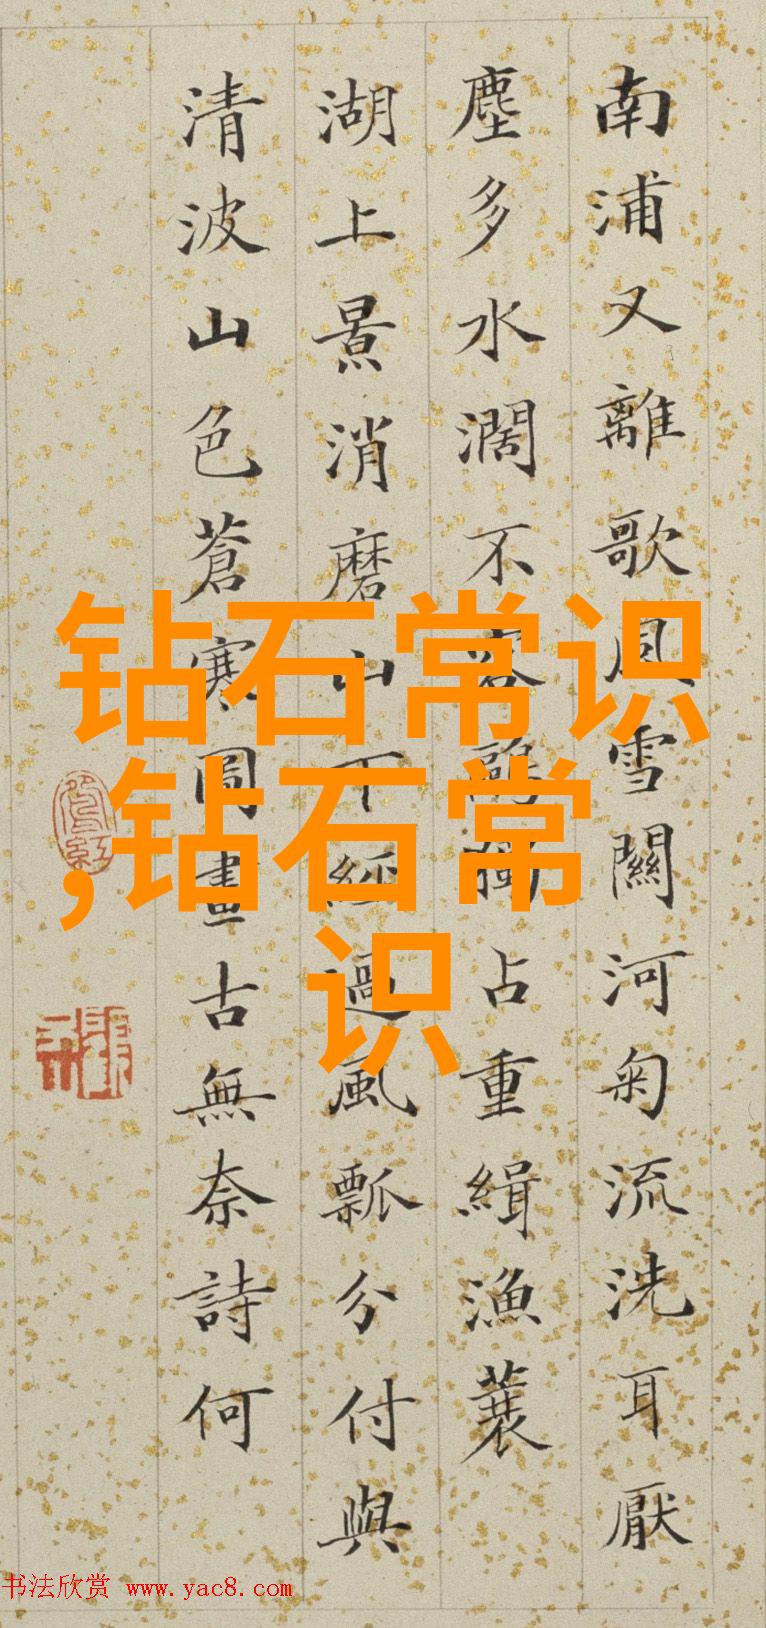 南浦又離歌風雪關河菊流洗耳厭
塵多水濶不容鷗獨占重緝漁蓑
湖上景消磨山下經過風瓢分付與
清波山色蒼寒圖畫古無奈詩何
钻石常识
,钻石常
识
书法欣赏 www.yac8.com